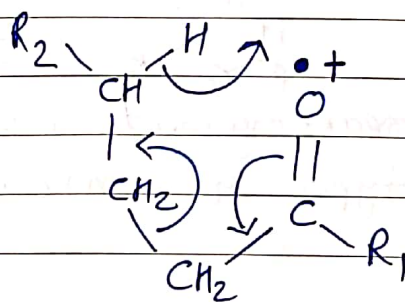 R2 H
CH •+
O
CH2
C
CH2 R1